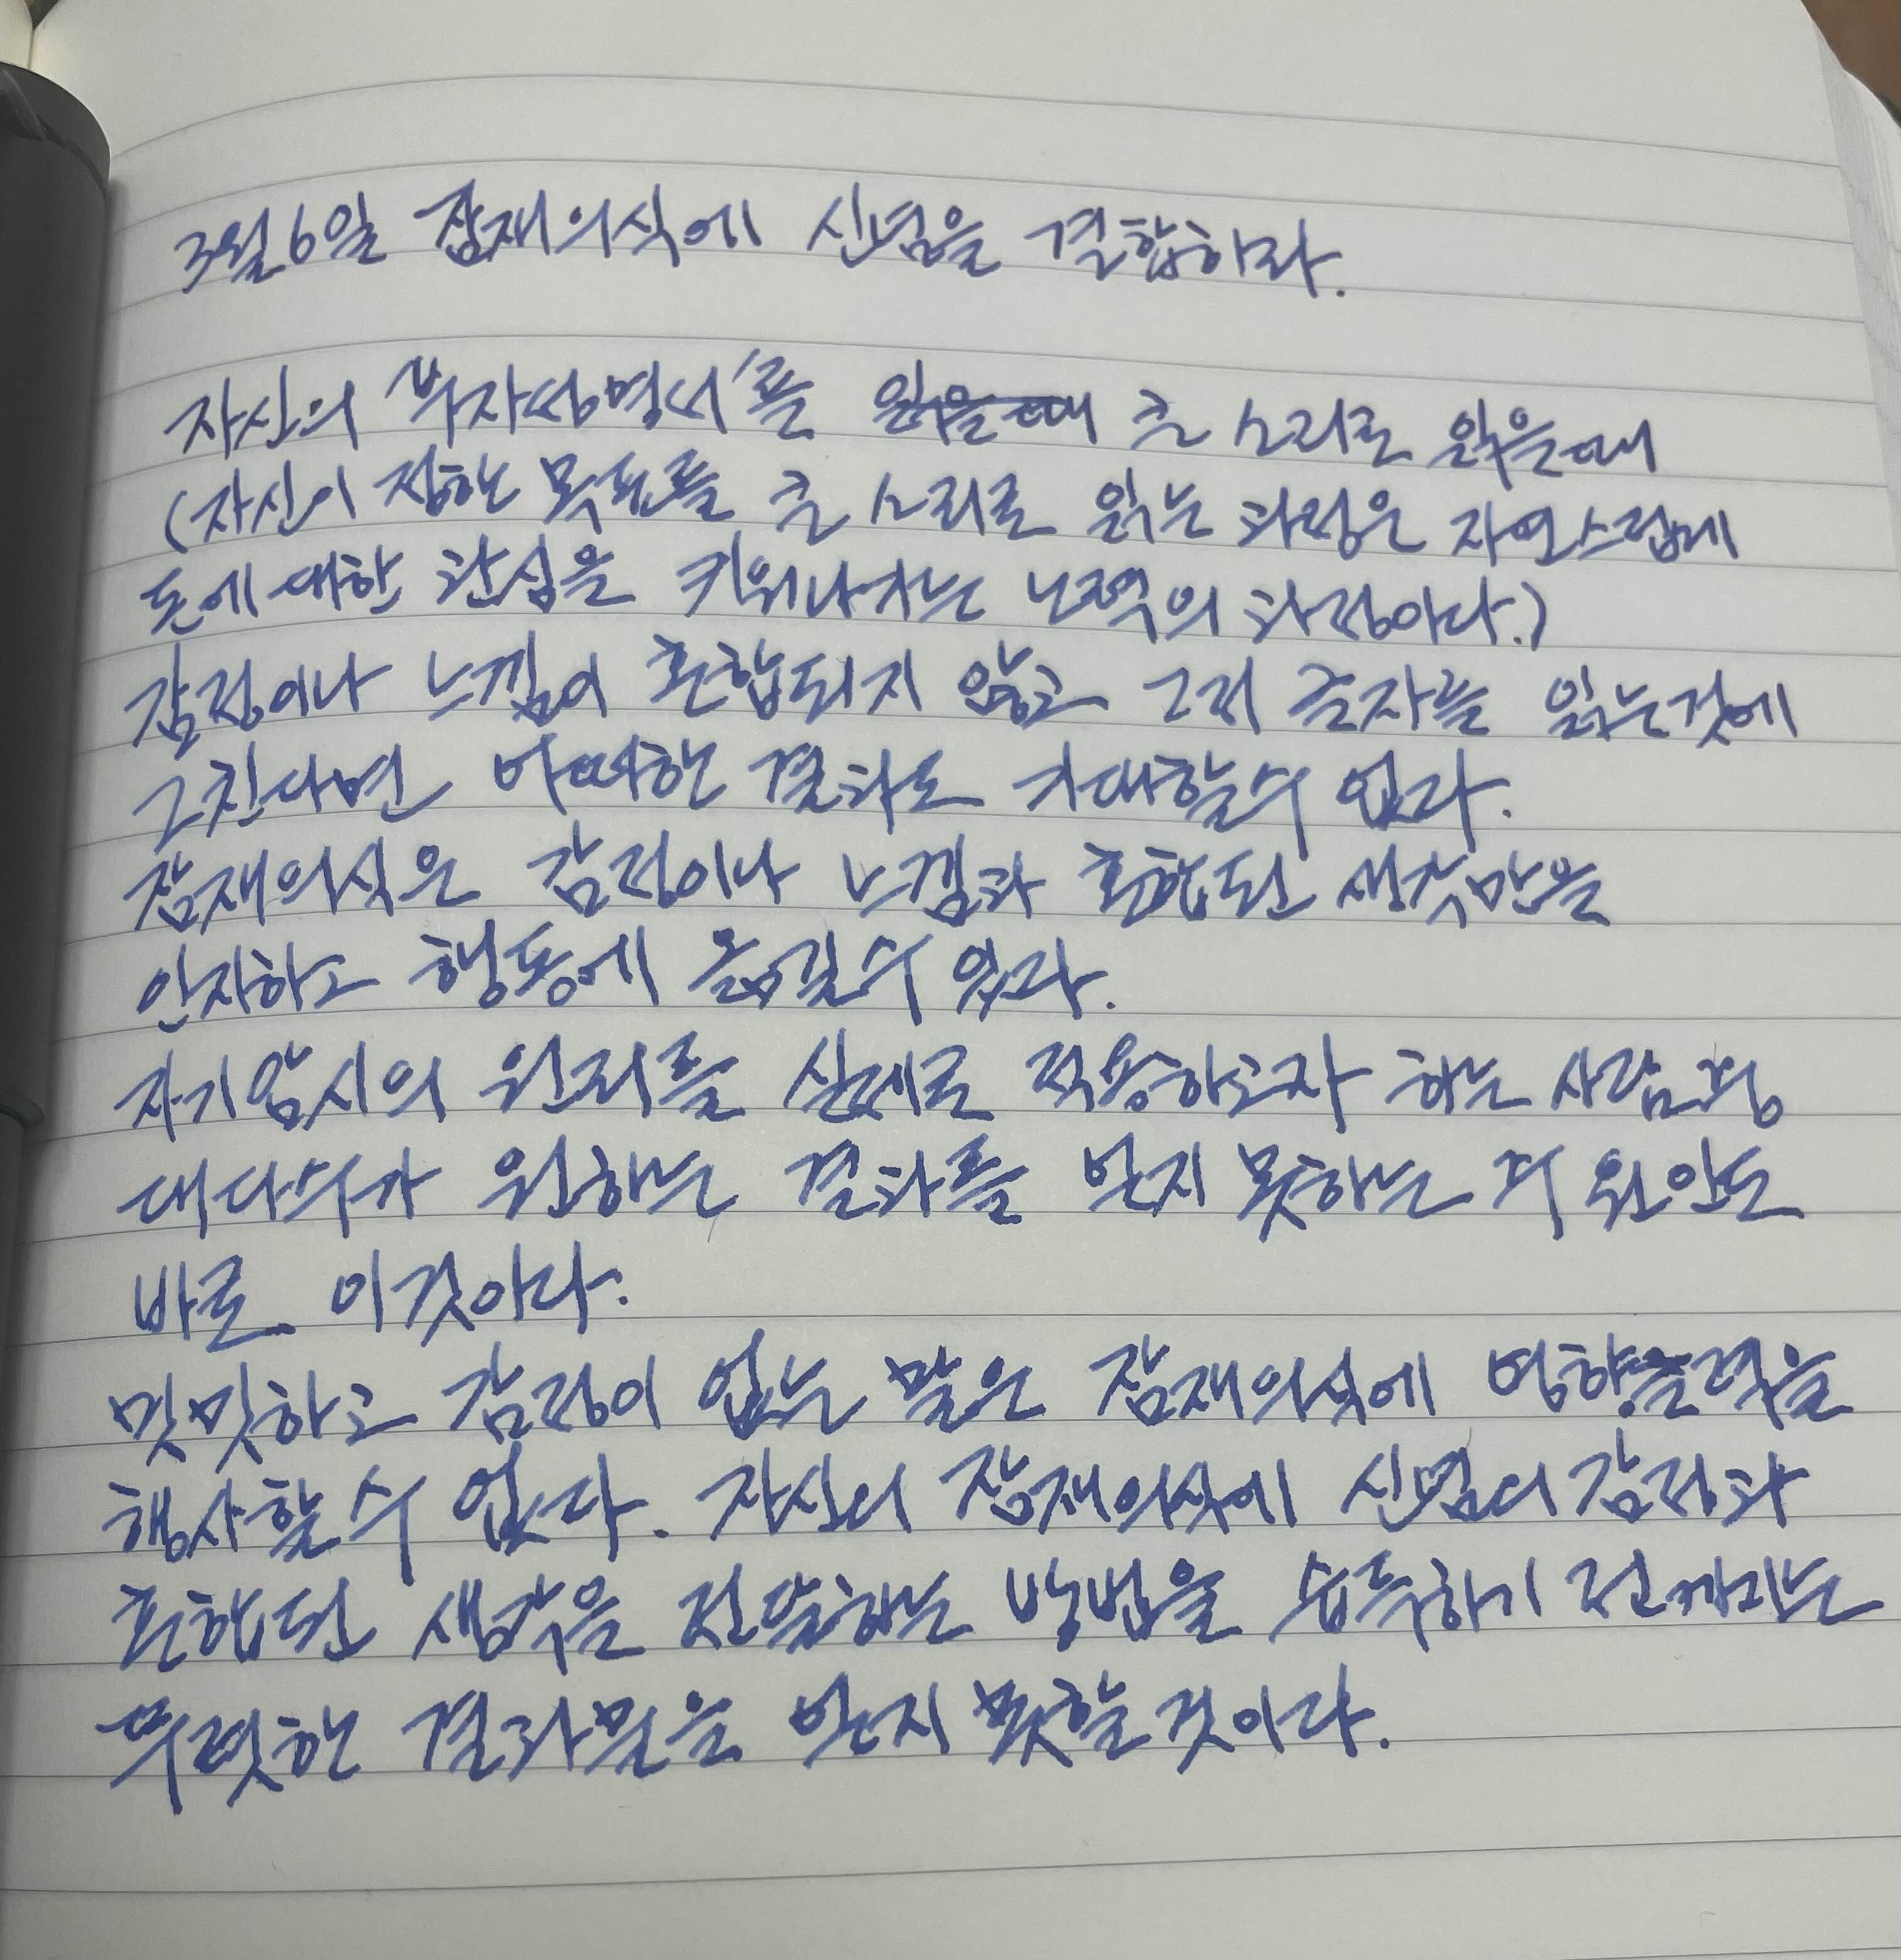 3월6일 잠재의식에 신념을 결합하라.
자신의 '부자성명서'를 읽을때 큰 소리로 읽을때
(자신이 정한 목표를 큰 소리로 읽는 과정은 자연스럽게
돈에 대한 관심을 키워나가는 노력의 과정이다.)
감정이나 느낌이 혼합되지 않고 그저 글자를 읽는것에
그친다면 어떠한 결과도 기대할수 없다.
잠재의식은 감정이나 느낌과 혼합된 생각만을
인지하고 행동에 옮길수 있다.
자기암시의 원리를 실제로 적용하고자 하는 사람중
대다수가 원하는 결과를 얻지 못하는 주 원인도
바로 이것이다.
밋밋하고 감정이 없는 말은 잠재의식에 영향력을
행사할 수 없다. 자신의 잠재의식에 신념의 감정과
혼합된 생각을 전달하는 방법을 습득하기 전까지는
뚜렷한 결과물을 얻지 못할것이다.